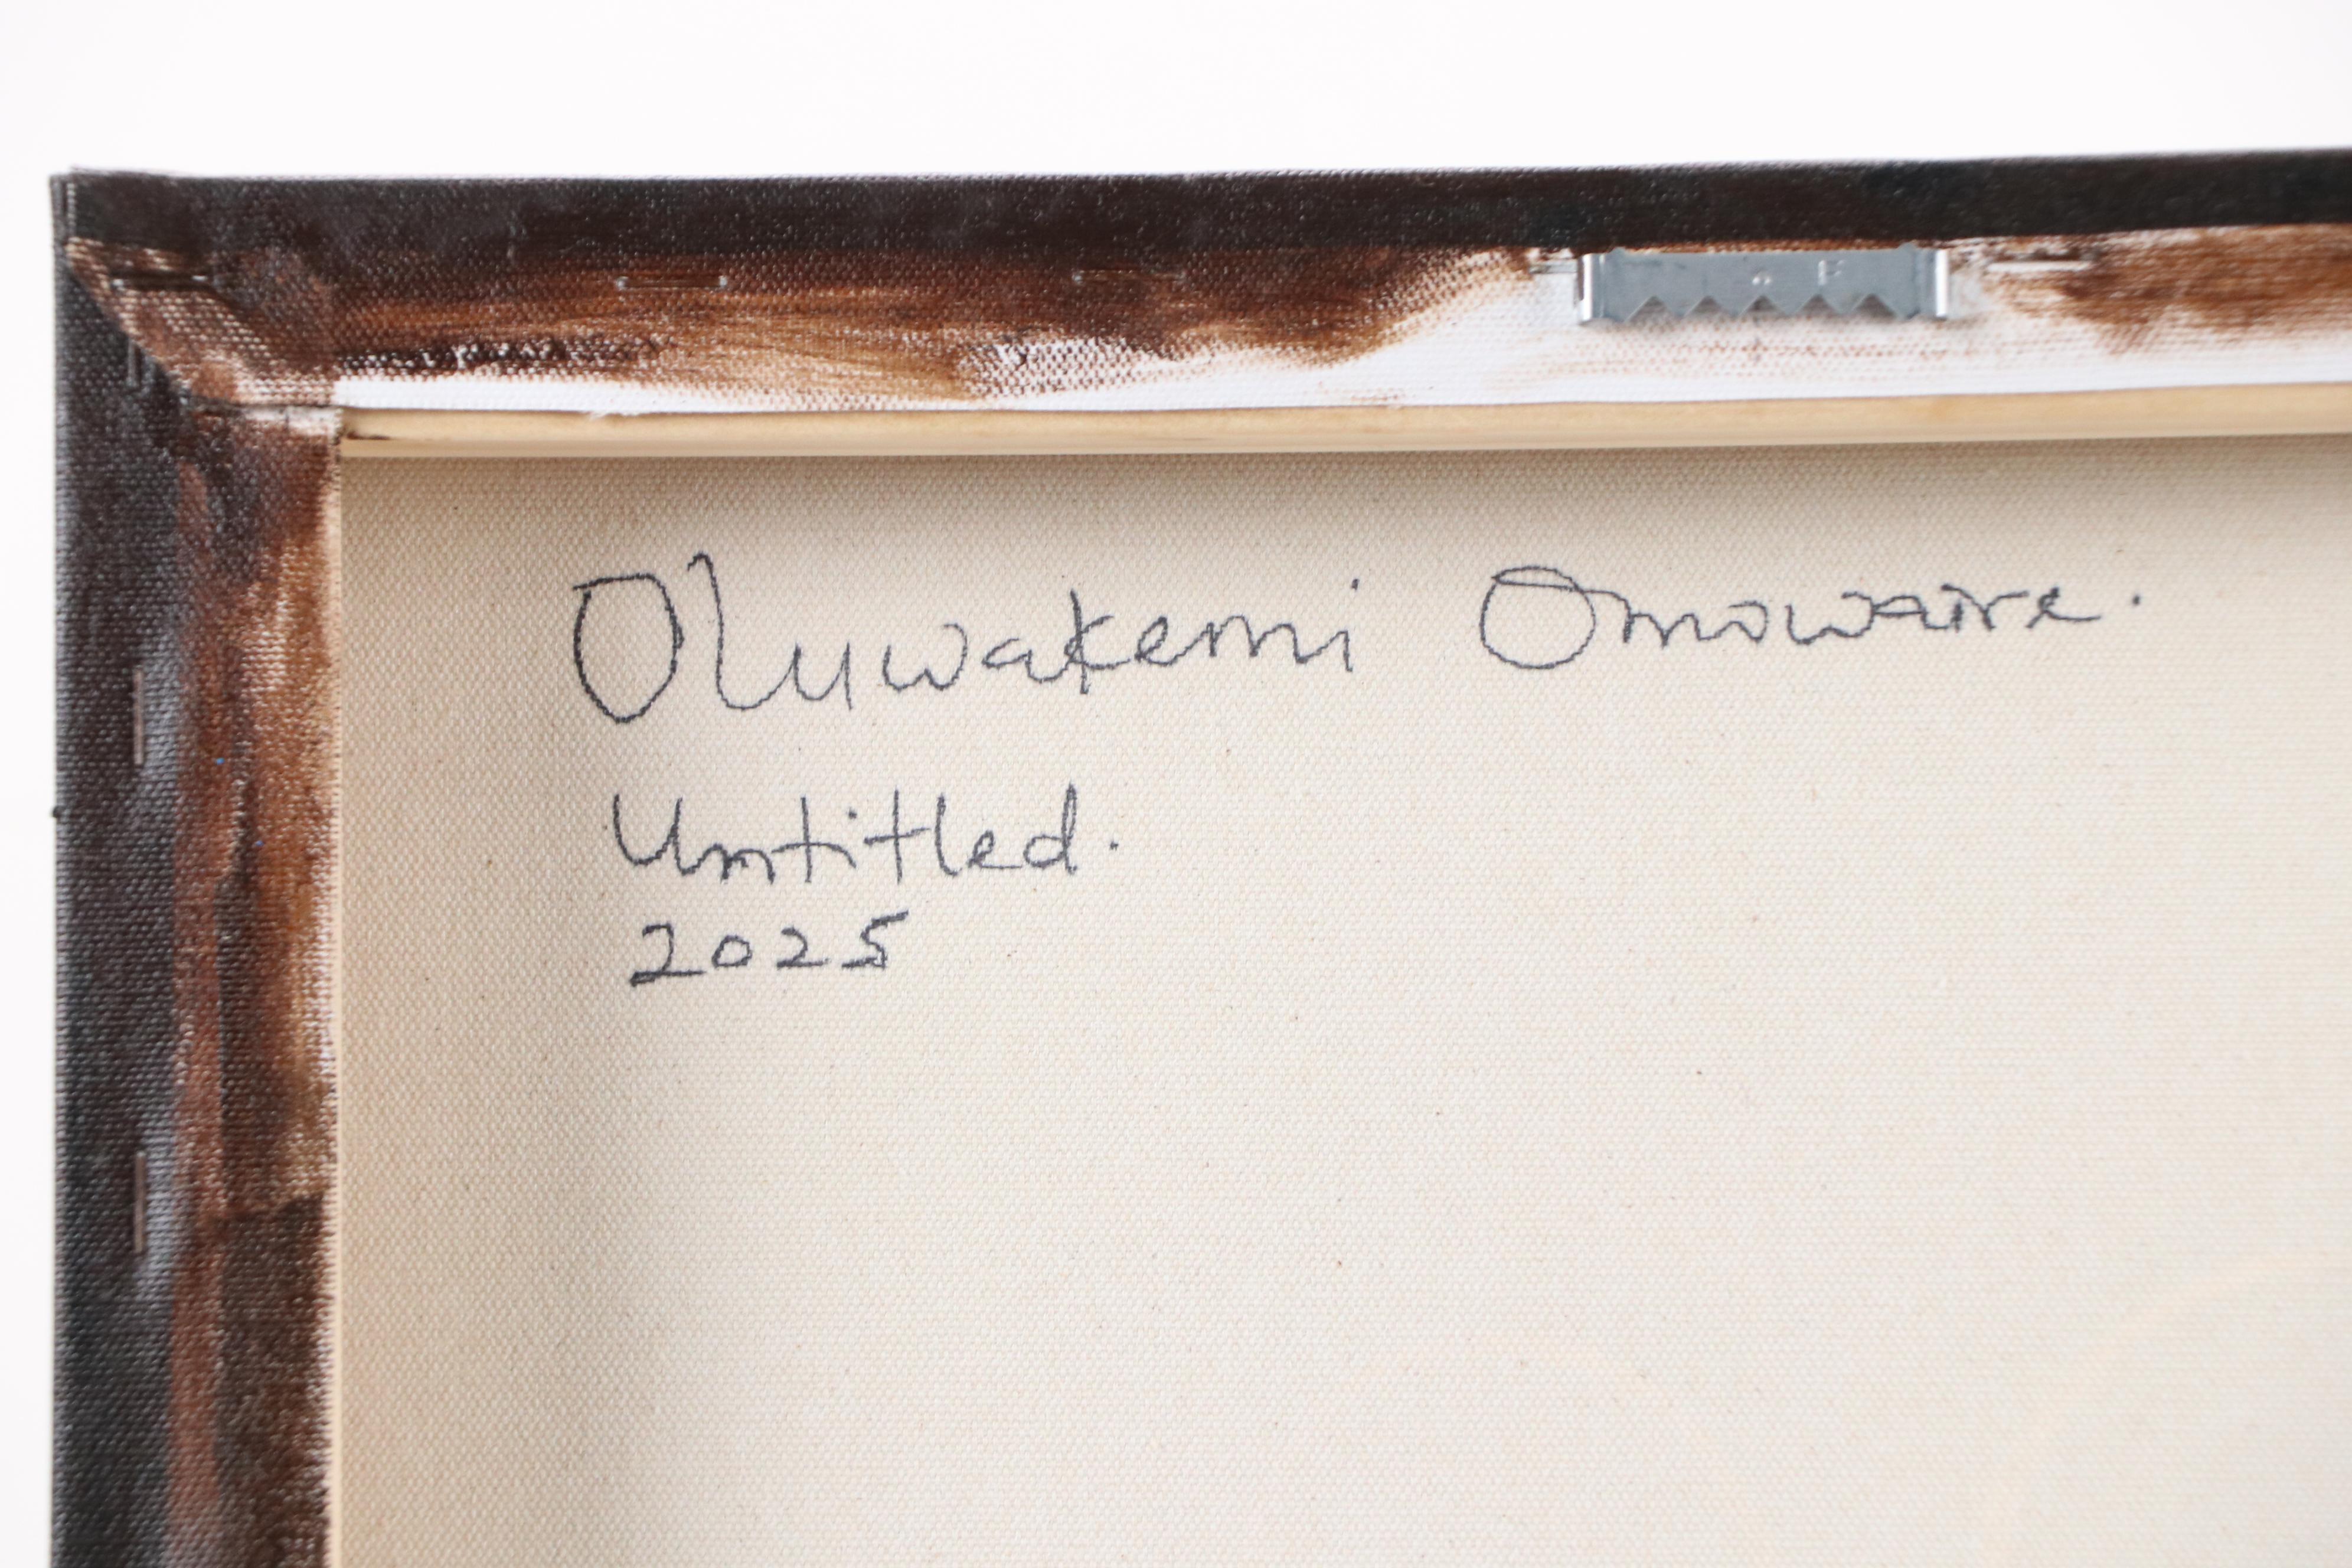 Oluwakemi Omowaire.
Untitled.
2025